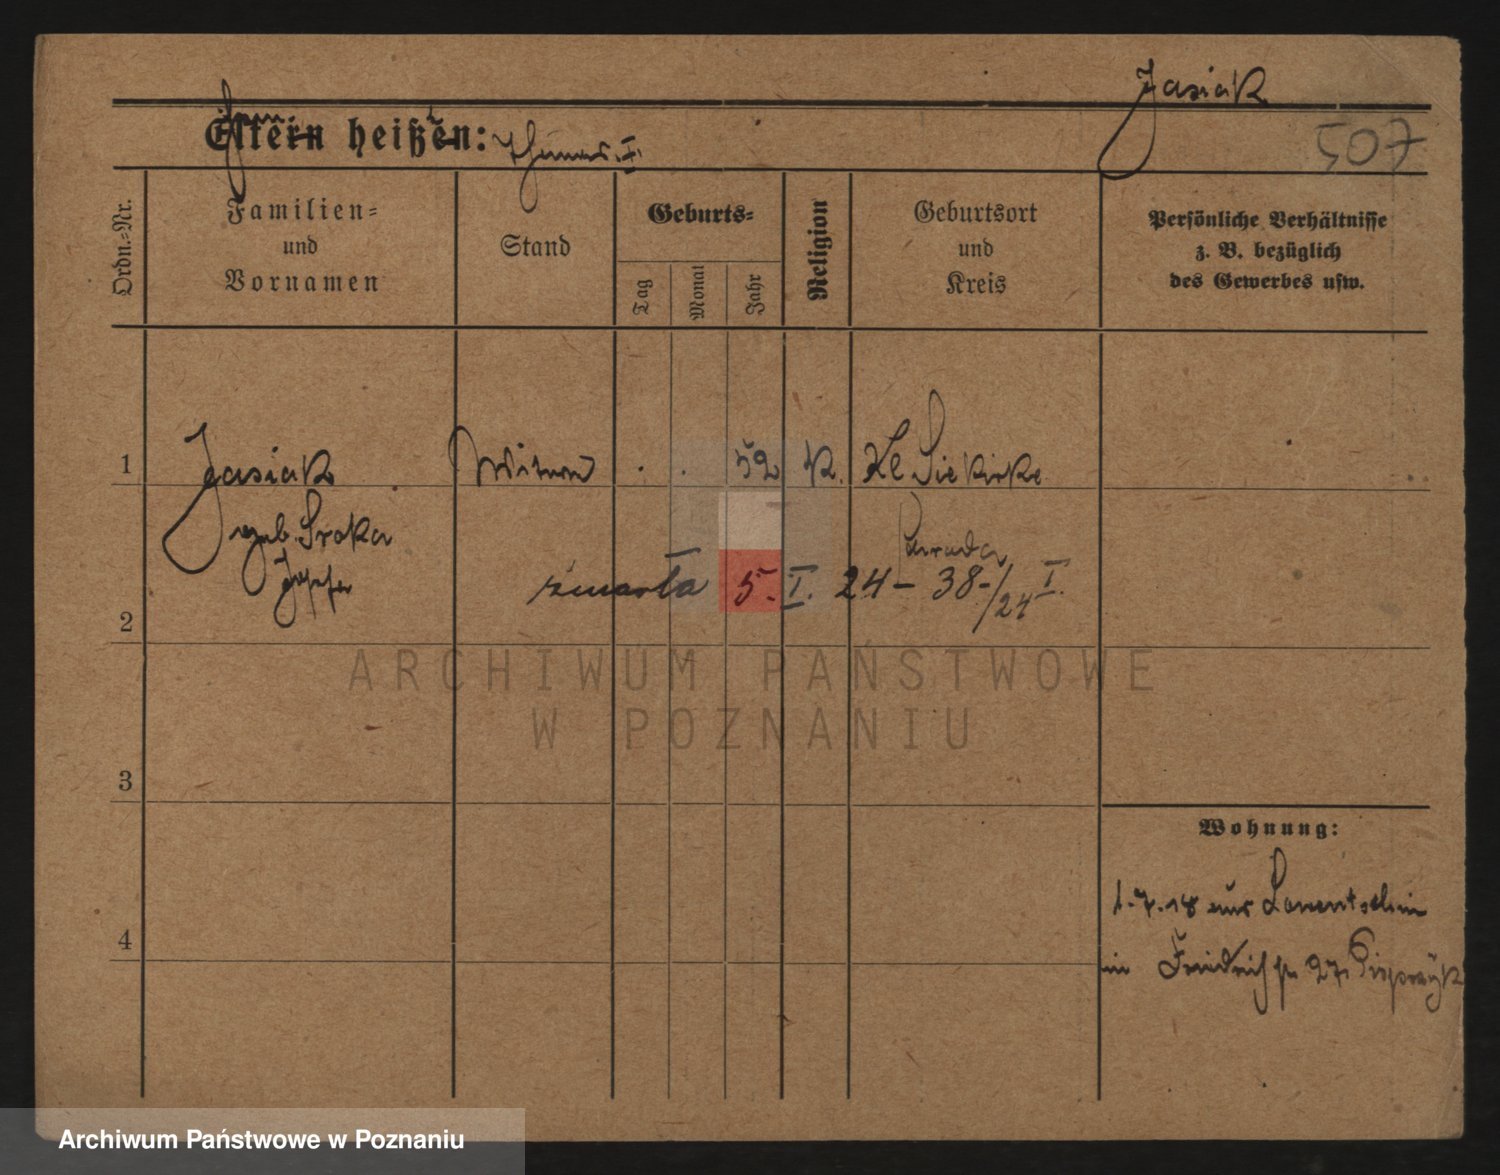 Jasiak
507
Eltern heißen: Thomas.
Ordn.-Nr.
Familien-
und
Vornamen
Stand
Geburts-
Tag
Monat
Jahr
Religion
Geburtsort
und
Kreis
Persönliche Verhältnisse
z. B. bezüglich
des Gewerbes usw.
1 Jasiak Witwe . . 52 K. Kl Siekirke
geb. Sroka
Josefa
Schroda
zmarła 5. I. 24 - 38/24 I.
2
ARCHIWUM PAŃSTWOWE
W POZNANIU
3
Wohnung:
1.7.18 aus
4
in Friedrichstr 27
Archiwum Państwowe w Poznaniu